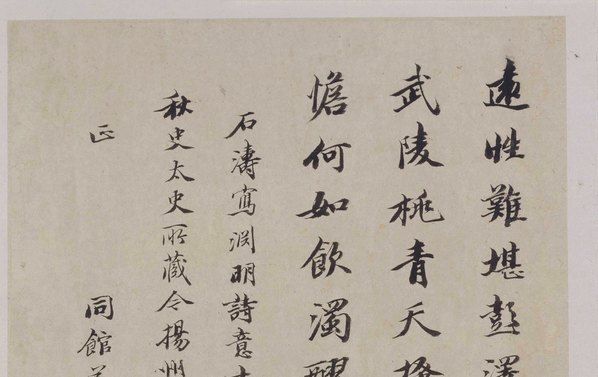 遠性難堪彭澤
武陵桃青天
憺何如飲濁醪
石濤寫淵明詩意
秋史太史所藏令揚州
正
同館